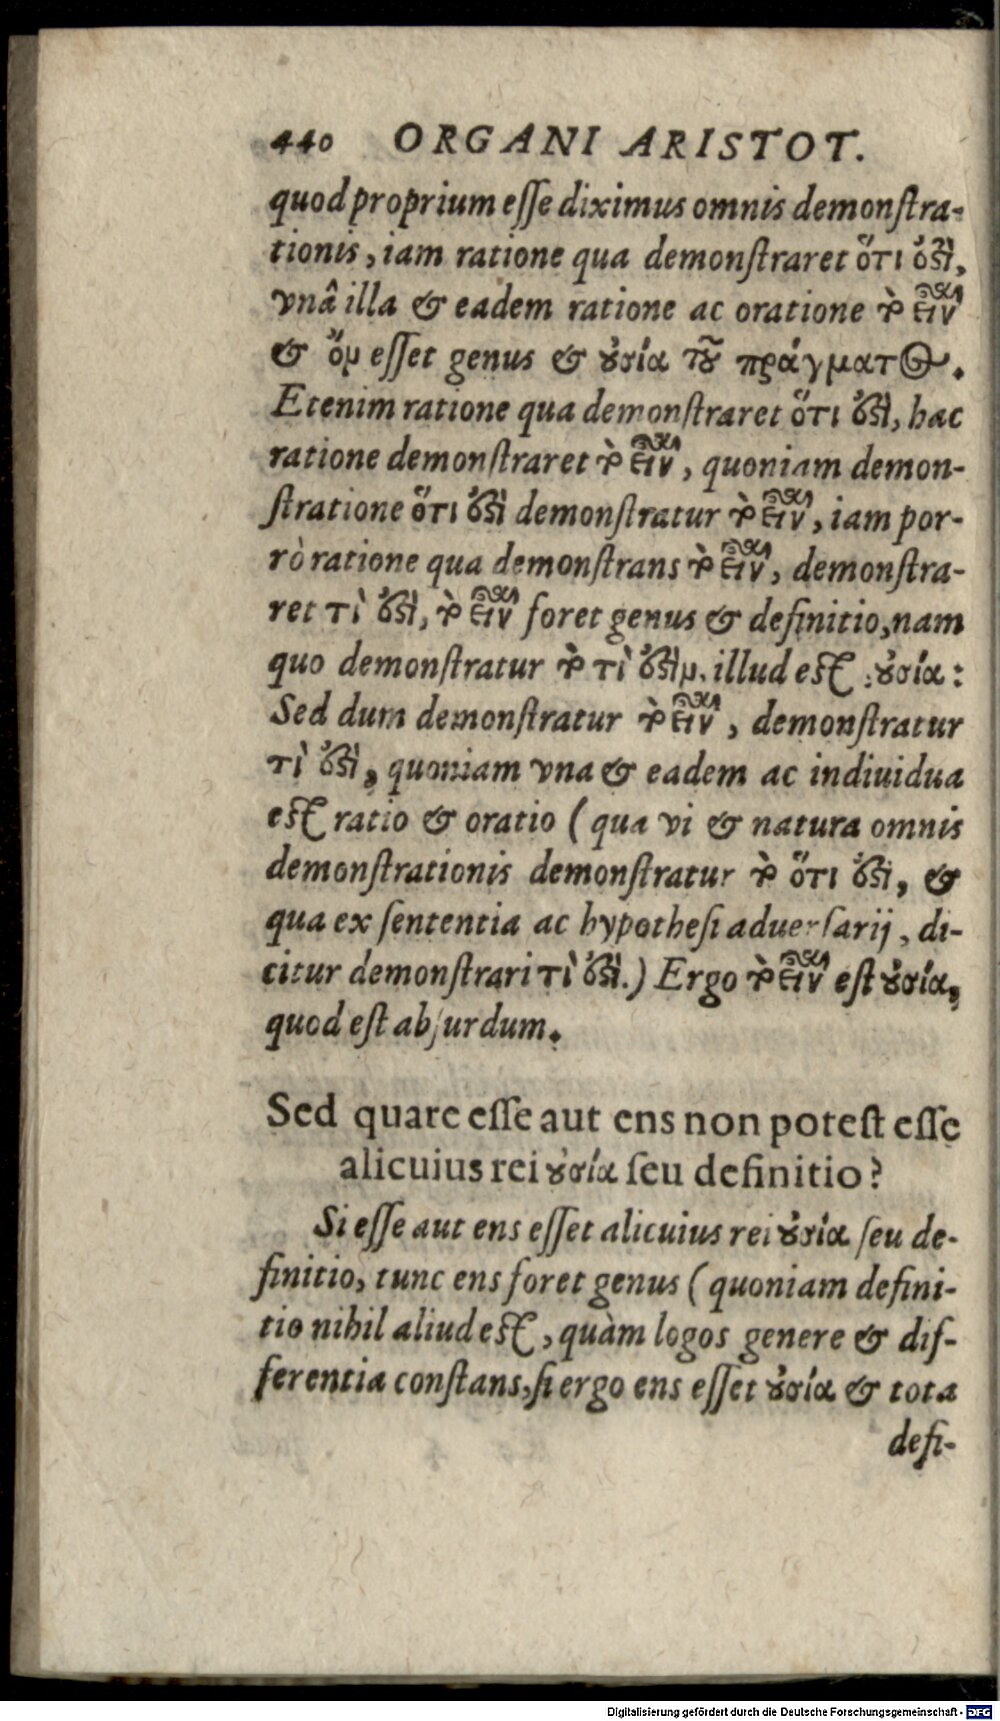 440 ORGANI ARISTOT.
quod proprium esse diximus omnis demonstra-
tionis, iam ratione qua demonstraret ὅτι ὅϛι,
vnâ illa & eadem ratione ac oratione τὸ εἶναι
& ὂν esset genus & ȣ̓σία τȣ͂ πράγματος.
Etenim ratione qua demonstraret ὅτι ὅϛι, hac
ratione demonstraret τὸ εἶναι, quoniam demon-
stratione ὅτι ὅϛι demonstratur τὸ εἶναι, iam por-
rò ratione qua demonstrans τὸ εἶναι, demonstra-
ret τὶ ὅϛι, τὸ εἶναι foret genus & definitio, nam
quo demonstratur τὸ τὶ ὅϛιν. illud est ȣ̓σία:
Sed dum demonstratur τὸ εἶναι, demonstratur
τὶ ὅϛι, quoniam vna & eadem ac indiuidua
est ratio & oratio (qua vi & natura omnis
demonstrationis demonstratur τὸ ὅτι ὅϛι, &
qua ex sententia ac hypothesi aduersarij, di-
citur demonstrari τὶ ὅϛι.) Ergo τὸ εἶναι est ȣ̓σία,
quod est absurdum.
Sed quare esse aut ens non potest esse
alicuius rei ȣ̓σία seu definitio?
Si esse aut ens esset alicuius rei ȣ̓σία seu de-
finitio, tunc ens foret genus (quoniam defini-
tio nihil aliud est, quàm logos genere & dif-
ferentia constans, si ergo ens esset ȣ̓σία & tota
defi-
Digitalisierung gefördert durch die Deutsche Forschungsgemeinschaft - DFG